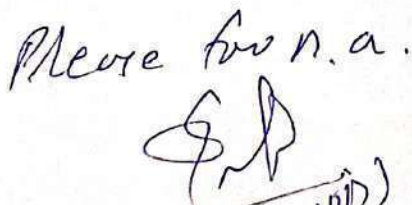 Please for n. a.